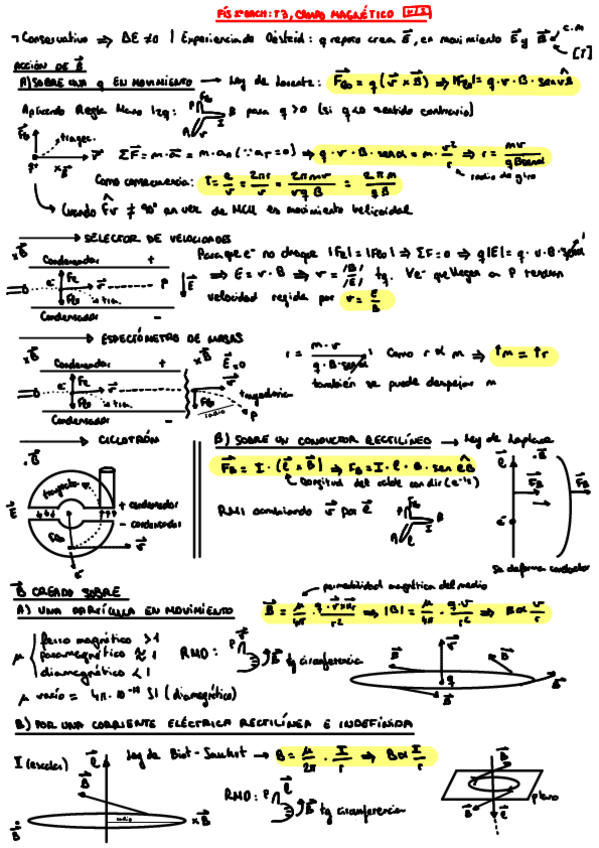 FÍS 2º BACH: T3, CAMPO MAGNÉTICO
¬ Conservativo ⇒ ΔE ≠ 0 | Experiencia de Oersted: q reposo crea E, en movimiento E y B c.m
[T]
ACCIÓN DE B
A) SOBRE UNA q EN MOVIMIENTO → Ley de Lorentz: F_B = q (v × B) ⇒ |F_B| = q · v · B · sen vB
Aplicando Regla Mano Izq: F F_B B I A v para q > 0 (si q < 0 sentido contrario)
F_B trayec. v q+ × B ΣF = m · a = m · a_n (∵ a_T = 0) ⇒ q · v · B · sen α = m · v²/r ⇒ r = mv/qB sen α
radio de giro
Como consecuencia: T = e/v = 2πr/v = 2πmv/vqB = 2πm/qB
Cuando Fv ≠ 90° en vez de MCU es movimiento helicoidal
→ SELECTOR DE VELOCIDADES
× B Condensador + Para que e⁻ no choque |F_E| = |F_B| ⇒ ΣF = 0 ⇒ q|E| = q · v · B · sen α
e⁻ F_E v P F_B tra. E ⇒ E = v · B ⇒ v = /B/ /E/ tq. Ve⁻ que llegan a P tendrán
Condensador − velocidad regida por v = E/B
→ ESPECTÓMETRO DE MASAS
× B Condensador + × B E = 0 r = m · v / q · B · sen α; Como r ∝ m ⇒ ↑m = ↑r
e⁻ F_E v F_B tra. v F_B radio P trayectoria también se puede despejar m
Condensador −
→ CICLOTRÓN
· B trayecto v + condensador − condensador F_B v
B) SOBRE UN CONDUCTOR RECTILÍNEO → Ley de Laplace
F_B = I · (ℓ × B) ⇒ F_B = I · ℓ · B · sen ℓB
Longitud del cable con dir (e⁻ls)
RMI cambiando v por ℓ F F_B B I A ℓ
ℓ · B F_B F_B e⁻
Se deforma conductor
B CREADO SOBRE
permeabilidad magnética del medio
A) UNA PARTÍCULA EN MOVIMIENTO B = μ/4π · q · v × u_r / r² ⇒ |B| = μ/4π · q · v / r² ⇒ B ∝ v/r
μ { ferro magnético > 1
paramagnético ≈ 1
diamagnético < 1
RMD: P v B tg circunferencia
v B B q B B
μ vacío = 4π · 10⁻¹⁹ SI (diamagnético)
B) POR UNA CORRIENTE ELÉCTRICA RECTILÍNEA E INDEFINIDA
I (escalar) ℓ B Ley de Biot - Savart → B = μ/2π · I/r ⇒ B ∝ I/r
RMD: P ℓ B tg circunferencia
· B radio × B
B B ℓ plano